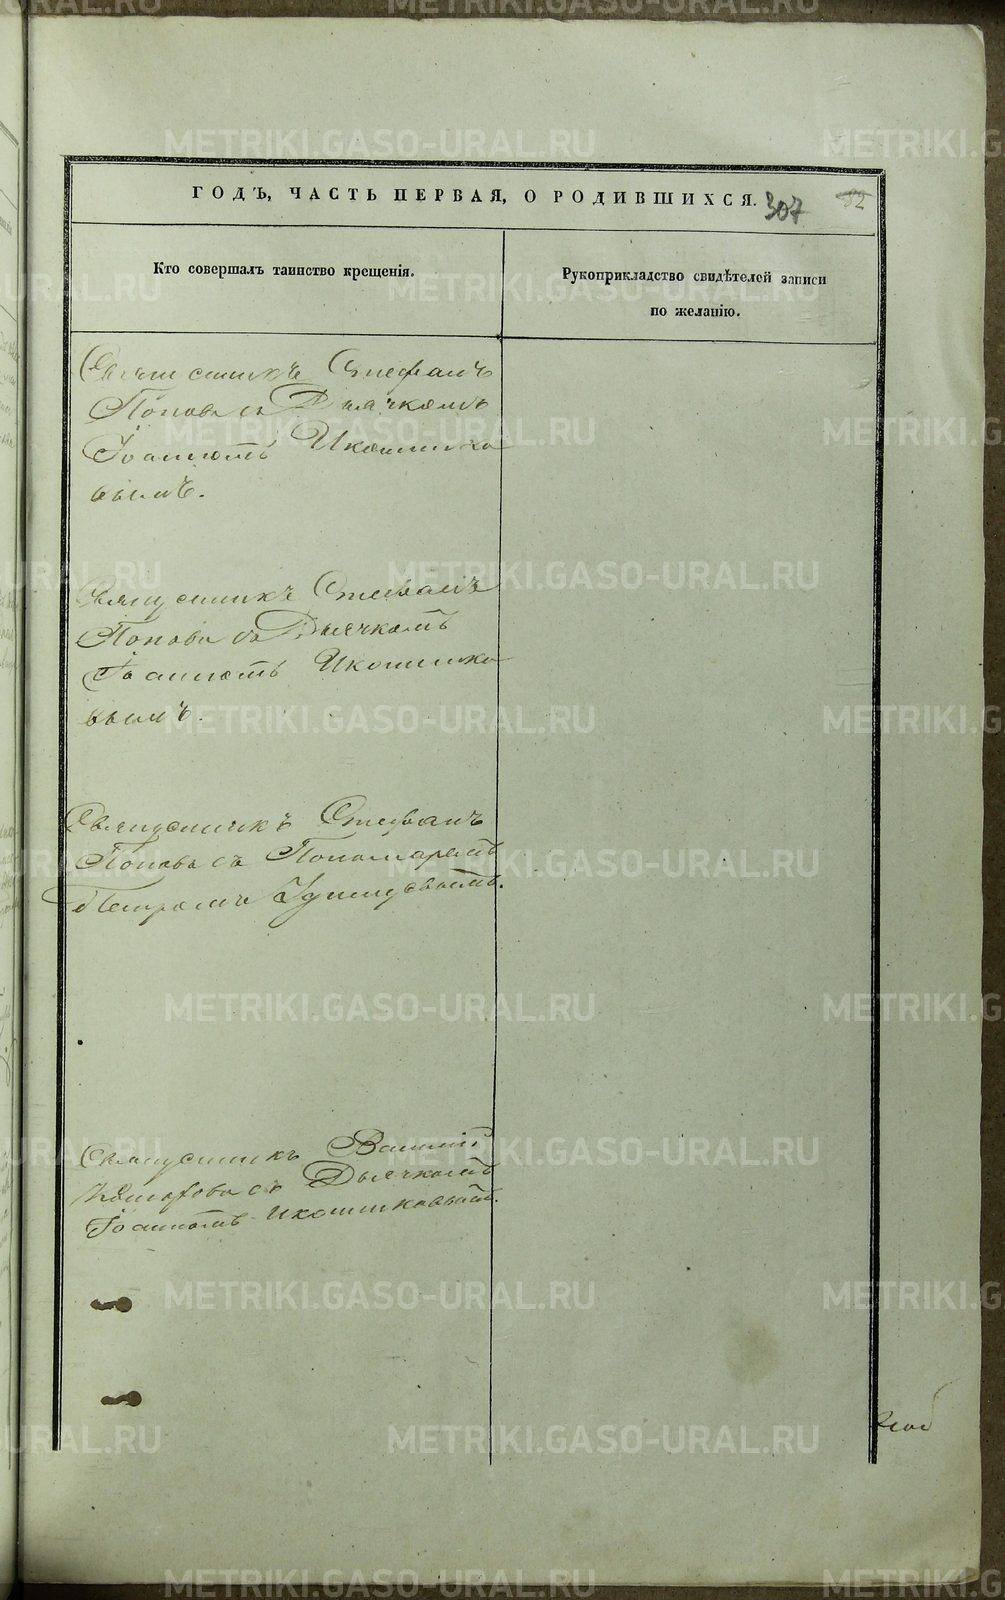 ГОДЪ, ЧАСТЬ ПЕРВАЯ, О РОДИВШИХСЯ.
307
82
Кто совершалъ таинство крещенія.
Рукоприкладство свидѣтелей записи
по желанію.
Священникъ Стефанъ
Поповъ съ Дьячкомъ
Іоанномъ Икошнико
вымъ.
Священникъ Стефанъ
Поповъ съ Дьячкомъ
Іоанномъ Икошнико
вымъ.
Священникъ Стефанъ
Поповъ съ Пономаремъ
Петромъ
Священникъ Василій
съ Дьячкомъ
Іоанномъ Икошниковымъ.
METRIKI.GASO-URAL.RU